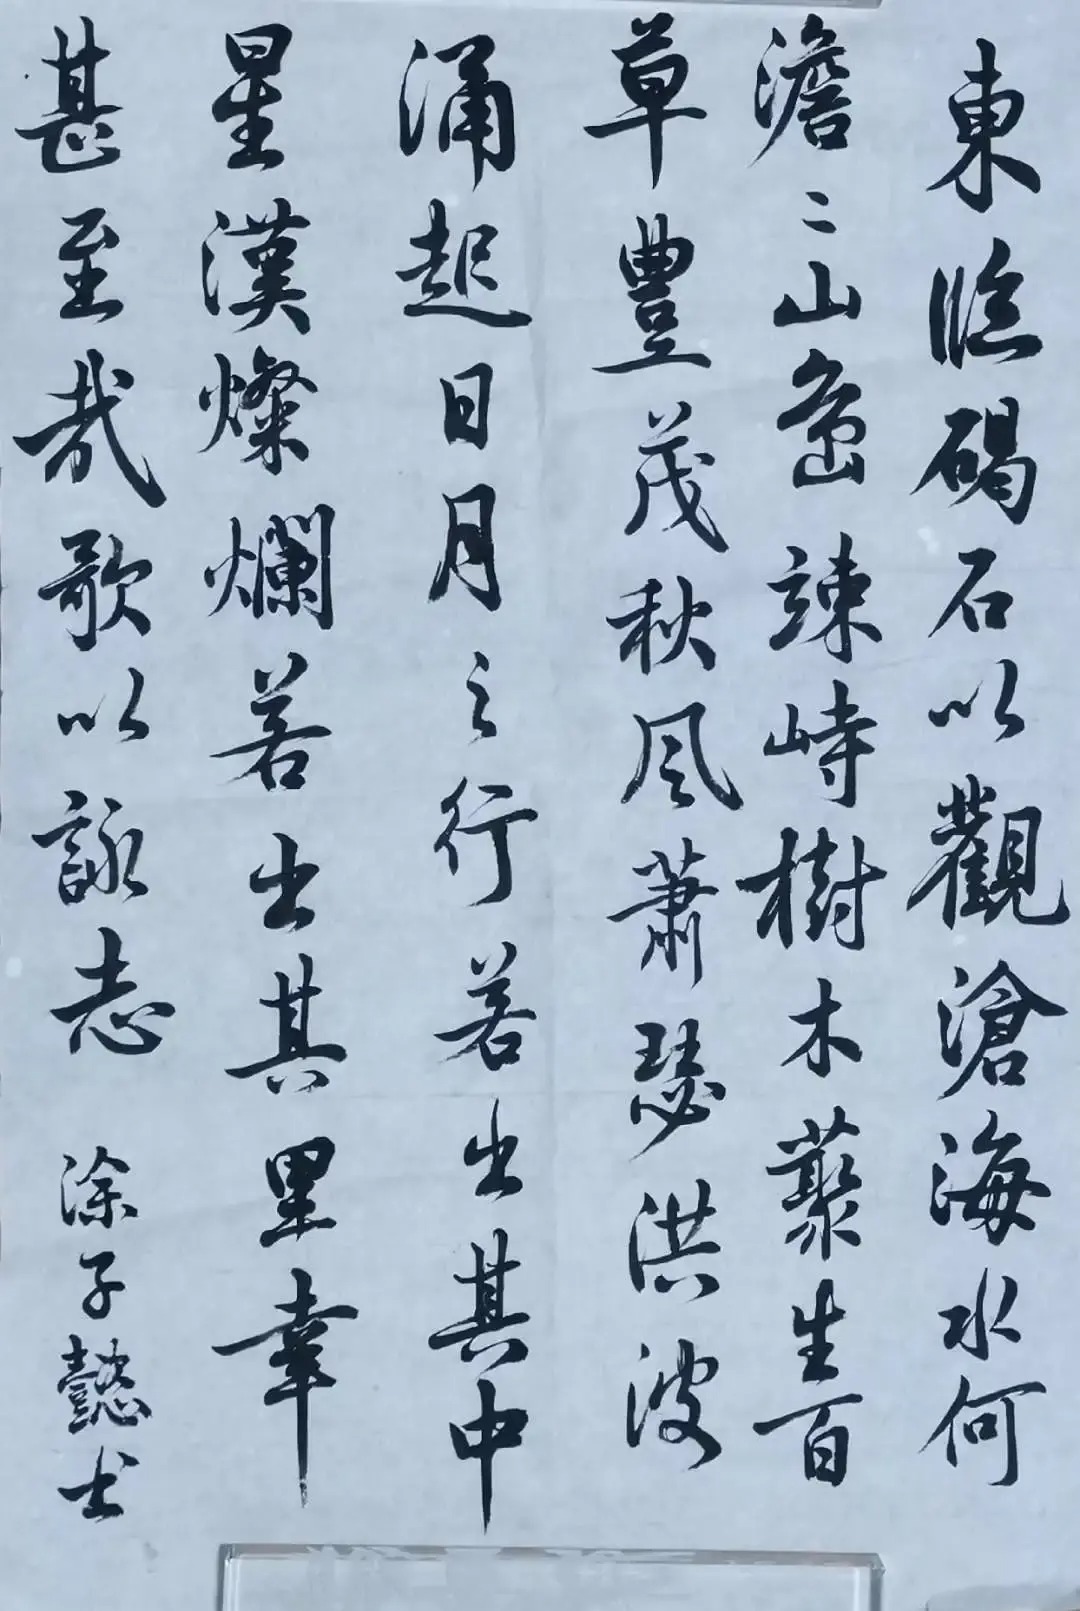 東臨碣石以觀滄海水何
澹〻山島竦峙樹木叢生百
草豐茂秋风蕭瑟洪波
涌起日月之行若出其中
星漢燦爛若出其里幸
甚至哉歌以詠志
涂子懿书